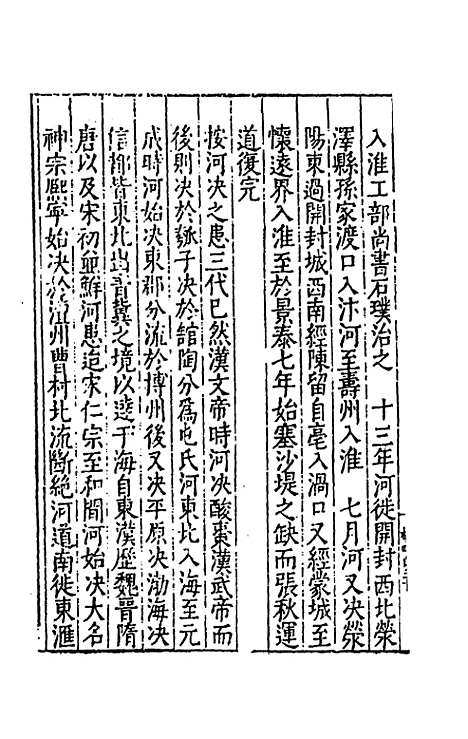 入淮工部尚書石璞治之　十三年河徙開封西北滎
澤縣孫家渡口入汴河至壽州入淮　七月河又決滎
陽東過開封城西南經陳留自亳入渦口又經蒙城至
懷遠界入淮至於景泰七年始塞沙堤之缺而張秋運
道復完
按河決之患三代已然漢文帝時河決酸棗漢武帝而
後則決於瓠子決於舘陶分爲屯氏河東北入海至元
成時河始決東郡分流於博州後又決平原決渤海決
信都皆東北出青冀之境以逹于海自東漢歷魏晉隋
唐以及宋初並鮮河患迨宋仁宗至和間河始决大名
神宗熈寧始决於澶州曹村北流斷絶河道南徙東滙